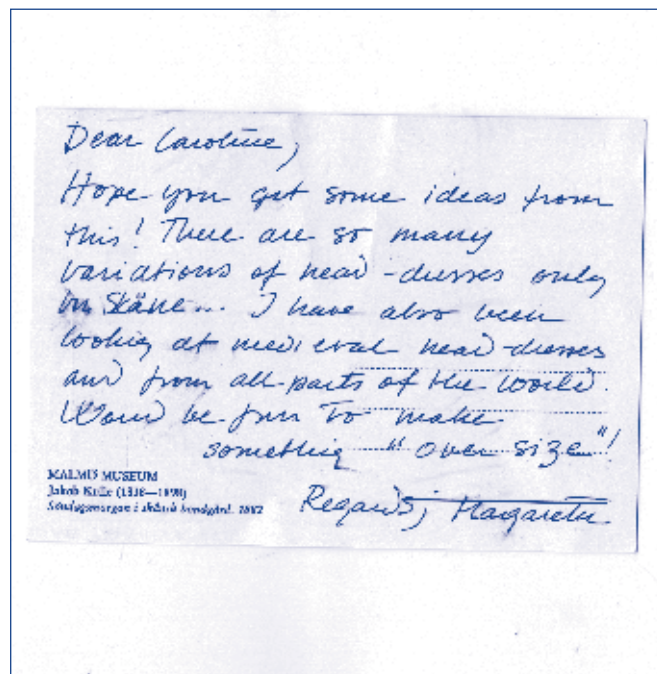 Dear Caroline,
Hope you get some ideas from
this! There are so many
variations of head-dresses only
in Skåne... I have also been
looking at medieval head-dresses
and from all parts of the world.
Woud be fun to make
something "over size"!
MALMÖ MUSEUM
Jakob Kulle (1838—1898)
Söndagsmorgon i skånsk bondgård. 1882
Regards, Margareta